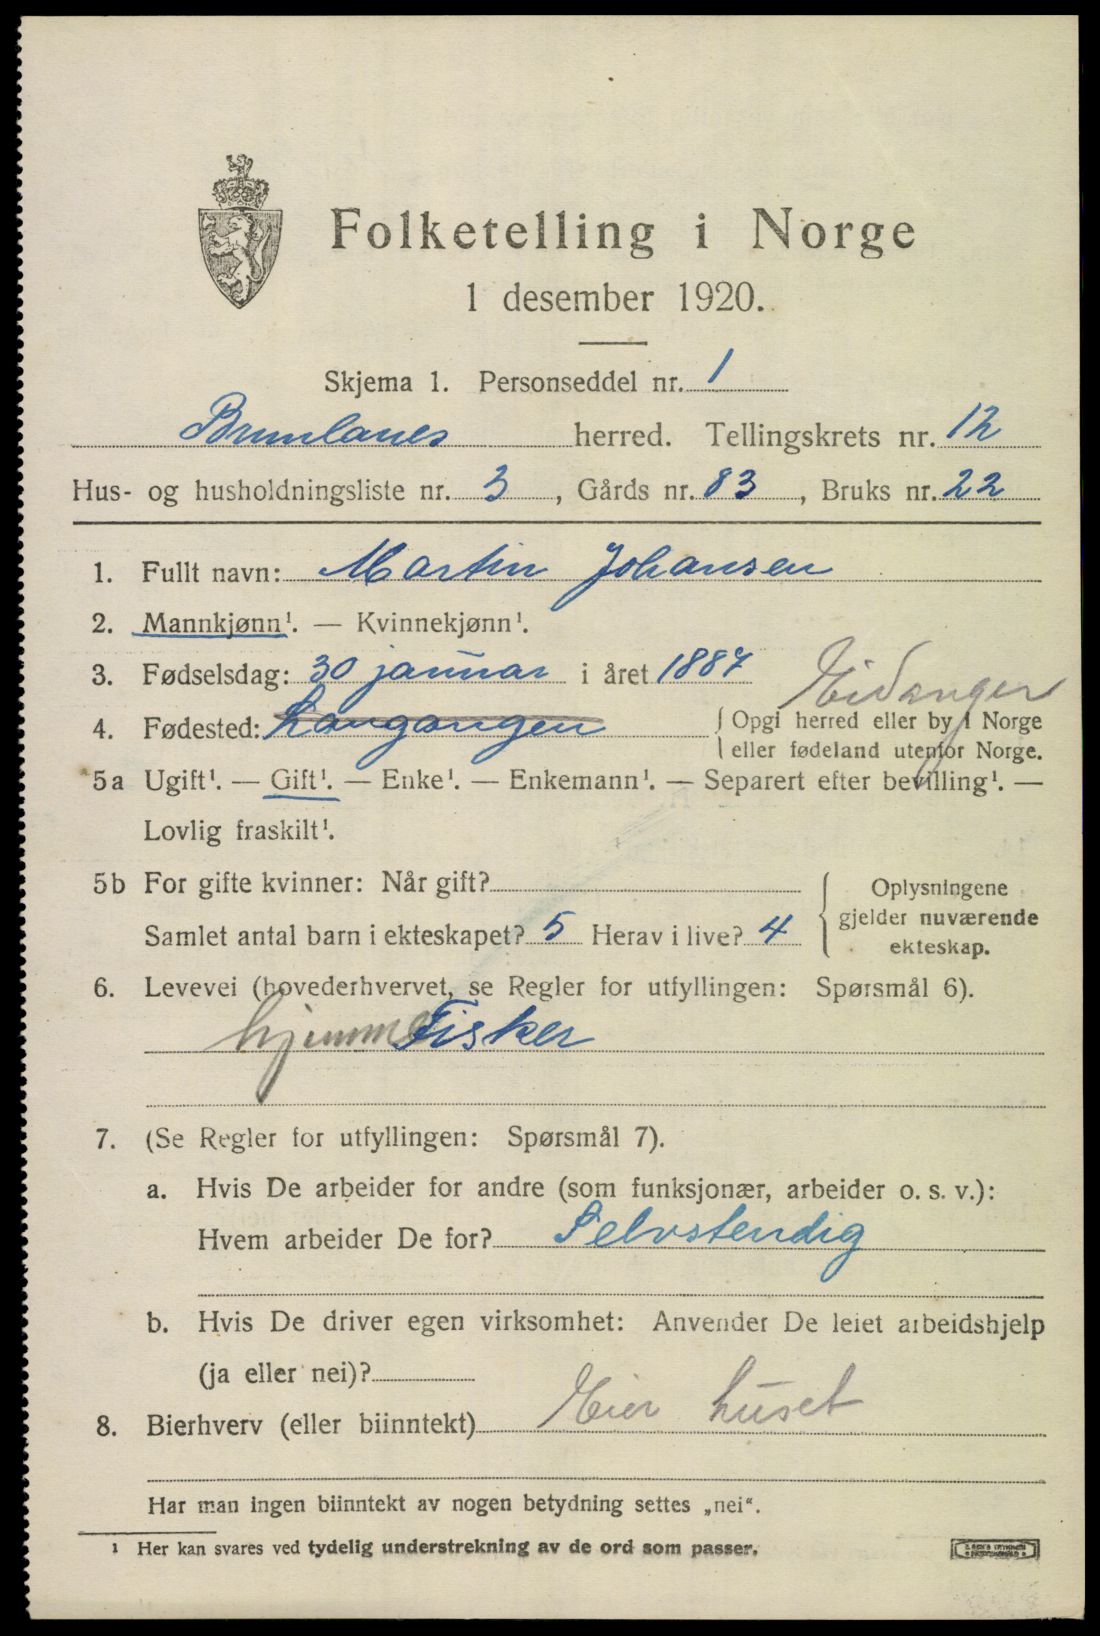 Folketelling i Norge
1 desember 1920.
Skjema 1. Personseddel nr. 1
Brunlanes herred. Tellingskrets nr. 12
Hus- og husholdningsliste nr. 3, Gårds nr. 83, Bruks nr. 22
1. Fullt navn: Martin Johansen
2. Mannkjønn¹. — Kvinnekjønn¹.
3. Fødselsdag: 30 januar i året 1887
Eidanger
4. Fødested: Langangen
Opgi herred eller by i Norge
eller fødeland utenfor Norge.
5a Ugift¹. — Gift¹. — Enke¹. — Enkemann¹. — Separert efter bevilling¹. —
Lovlig fraskilt¹.
5b For gifte kvinner: Når gift?
Samlet antal barn i ekteskapet? 5 Herav i live? 4
Oplysningene
gjelder nuværende
ekteskap.
6. Levevei (hovederhvervet, se Regler for utfyllingen: Spørsmål 6).
hjemme Fisker
7. (Se Regler for utfyllingen: Spørsmål 7).
a. Hvis De arbeider for andre (som funksjonær, arbeider o. s. v.):
Hvem arbeider De for? Selvstendig
b. Hvis De driver egen virksomhet: Anvender De leiet arbeidshjelp
(ja eller nei)?
8. Bierhverv (eller biinntekt) Eier huset
Har man ingen biinntekt av nogen betydning settes „nei“.
¹ Her kan svares ved tydelig understrekning av de ord som passer.